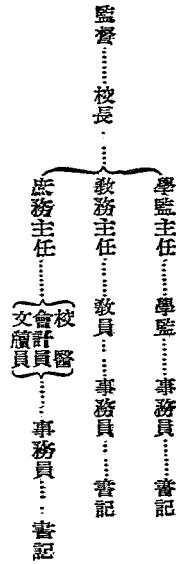 監督……校長……
學監主任……學監……事務員……書記
教務主任……教員……事務員……書記
庶務主任……
校醫
會計員
文牘員
……事務員……書記